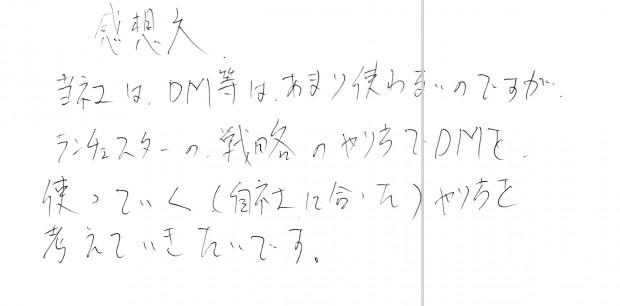 感想文
当社は、DM等は、あまり使わないのですが、
ランチェスターの、戦略のやり方でDMを、
使っていく(自社に合った)やり方を
考えていきたいです。